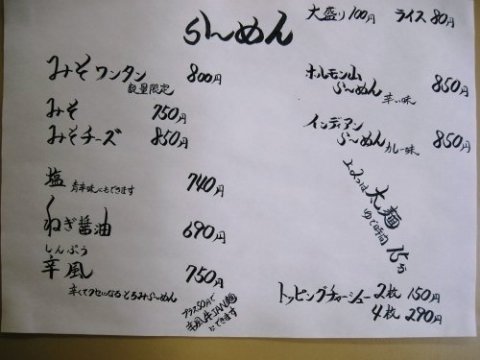 らーめん
大盛り100円 ライス80円
みそワンタン 800円
数量限定
みそ 750円
みそチーズ 850円
塩 辛味にもできます 740円
ねぎ醤油 690円
しんぷう
辛風 750円
辛くてクセになるとろみらーめん
プラス50円で
にできます
ホルモン山
らーめん 辛い味 850円
インディアン
らーめん カレー味 850円
太麺
ゆで時間 15分
トッピングチャーシュー 2枚 150円
4枚 290円